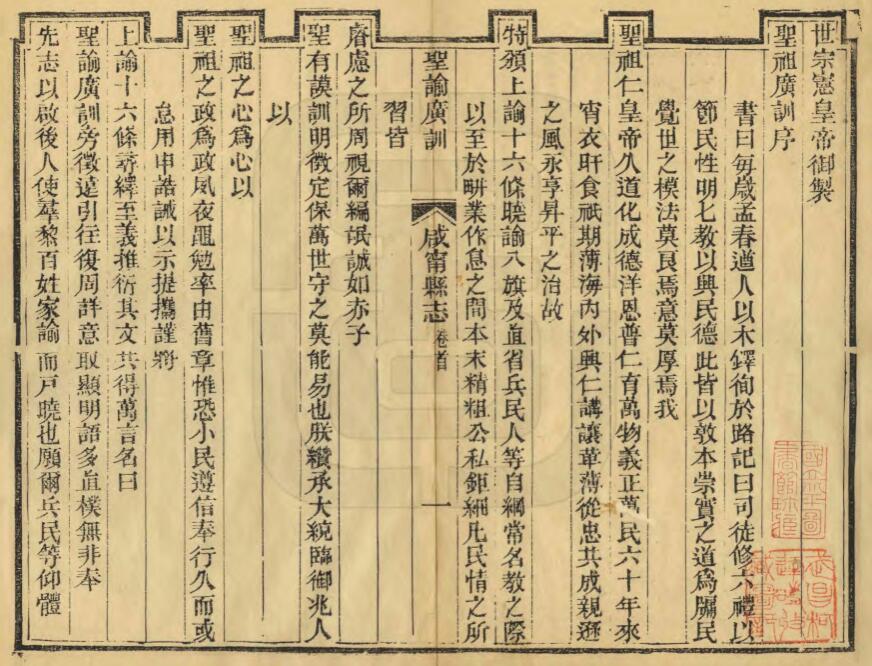 世宗憲皇帝御製
聖祖廣訓序
書曰每歲孟春遒人以木鐸徇於路記曰司徒修六禮以
節民性明七教以興民德此皆以敦本崇實之道為牖民
覺世之模法莫良焉意莫厚焉我
聖祖仁皇帝久道化成德洋恩普仁育萬物義正萬民六十年來
宵衣旰食祇期薄海內外興仁講讓革薄從忠共成親遜
之風永享昇平之治故
特頒上諭十六條曉諭八旗及直省兵民人等自綱常名教之際
以至於畊業作息之間本末精粗公私鉅細凡民情之所
聖諭廣訓
咸甯縣志 卷首
一
習皆
睿慮之所周視爾編氓誠如赤子
聖有謨訓明徵定保萬世守之莫能易也朕纘承大統臨御兆人
以
聖祖之心為心以
聖祖之政為政夙夜黽勉率由舊章惟恐小民遵信奉行久而或
怠用申誥誡以示提撕謹將
上諭十六條尋繹至義推衍其文共得萬言名曰
聖諭廣訓旁徵遠引往復周詳意取顯明語多直樸無非奉
先志以啟後人使羣黎百姓家諭而戶曉也願爾兵民等仰體